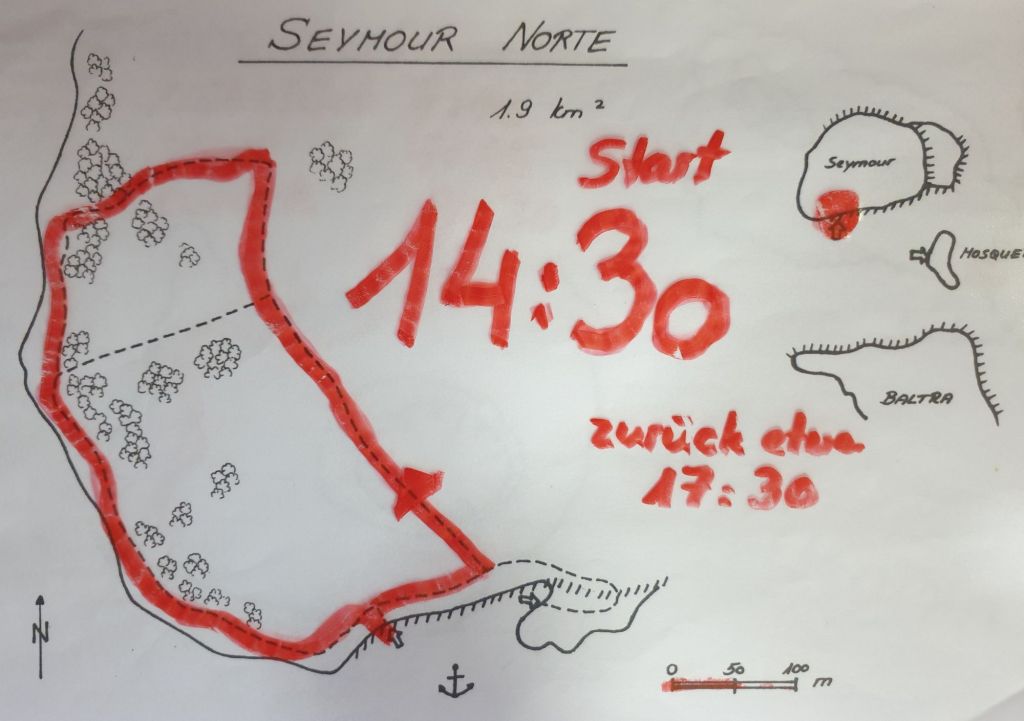 SEYMOUR NORTE
1.9 km²
Start
14:30
zurück etwa
17:30
Seymour
MOSQUE
BALTRA
N
0 50 100 m